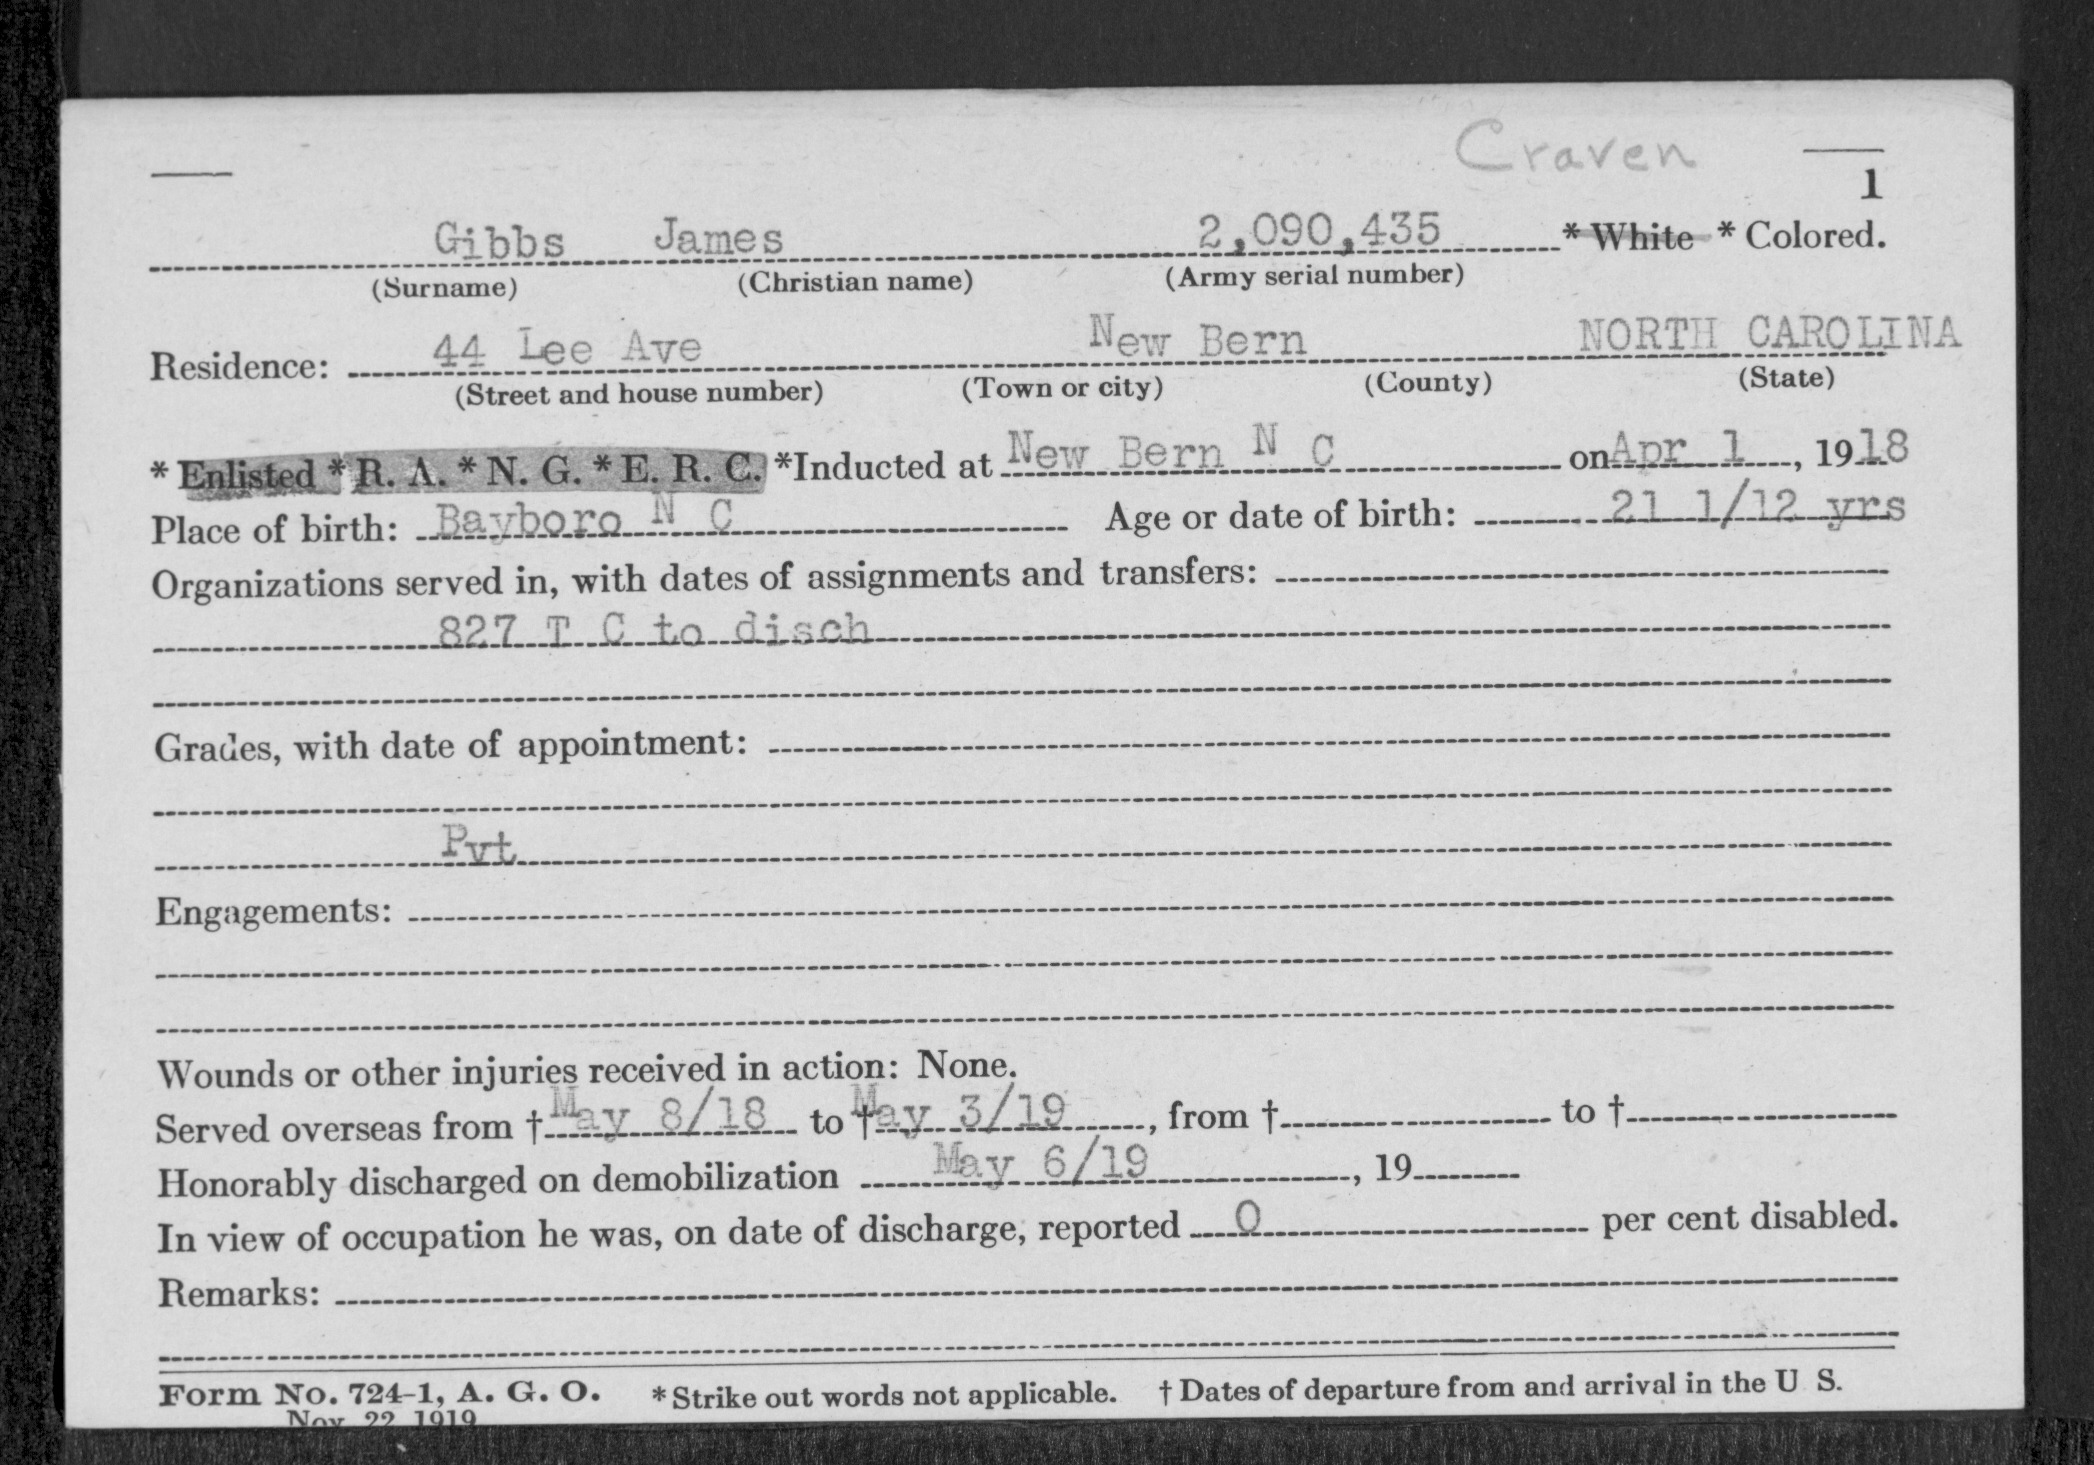 Craven
1
Gibbs James 2,090,435 * White * Colored.
(Surname) (Christian name) (Army serial number)
Residence: 44 Lee Ave New Bern NORTH CAROLINA
(Street and house number) (Town or city) (County) (State)
* Enlisted * R. A. * N. G. * E. R. C. *Inducted at New Bern N C on Apr 1, 1918
Place of birth: Bayboro N C Age or date of birth: 21 1/12 yrs
Organizations served in, with dates of assignments and transfers:
827 T C to disch
Grades, with date of appointment:
Pvt
Engagements:
Wounds or other injuries received in action: None.
Served overseas from † May 8/18 to † May 3/19, from † to †
Honorably discharged on demobilization May 6/19, 19
In view of occupation he was, on date of discharge, reported 0 per cent disabled.
Remarks:
Form No. 724-1, A. G. O. * Strike out words not applicable. † Dates of departure from and arrival in the U S.
Nov. 22 1919